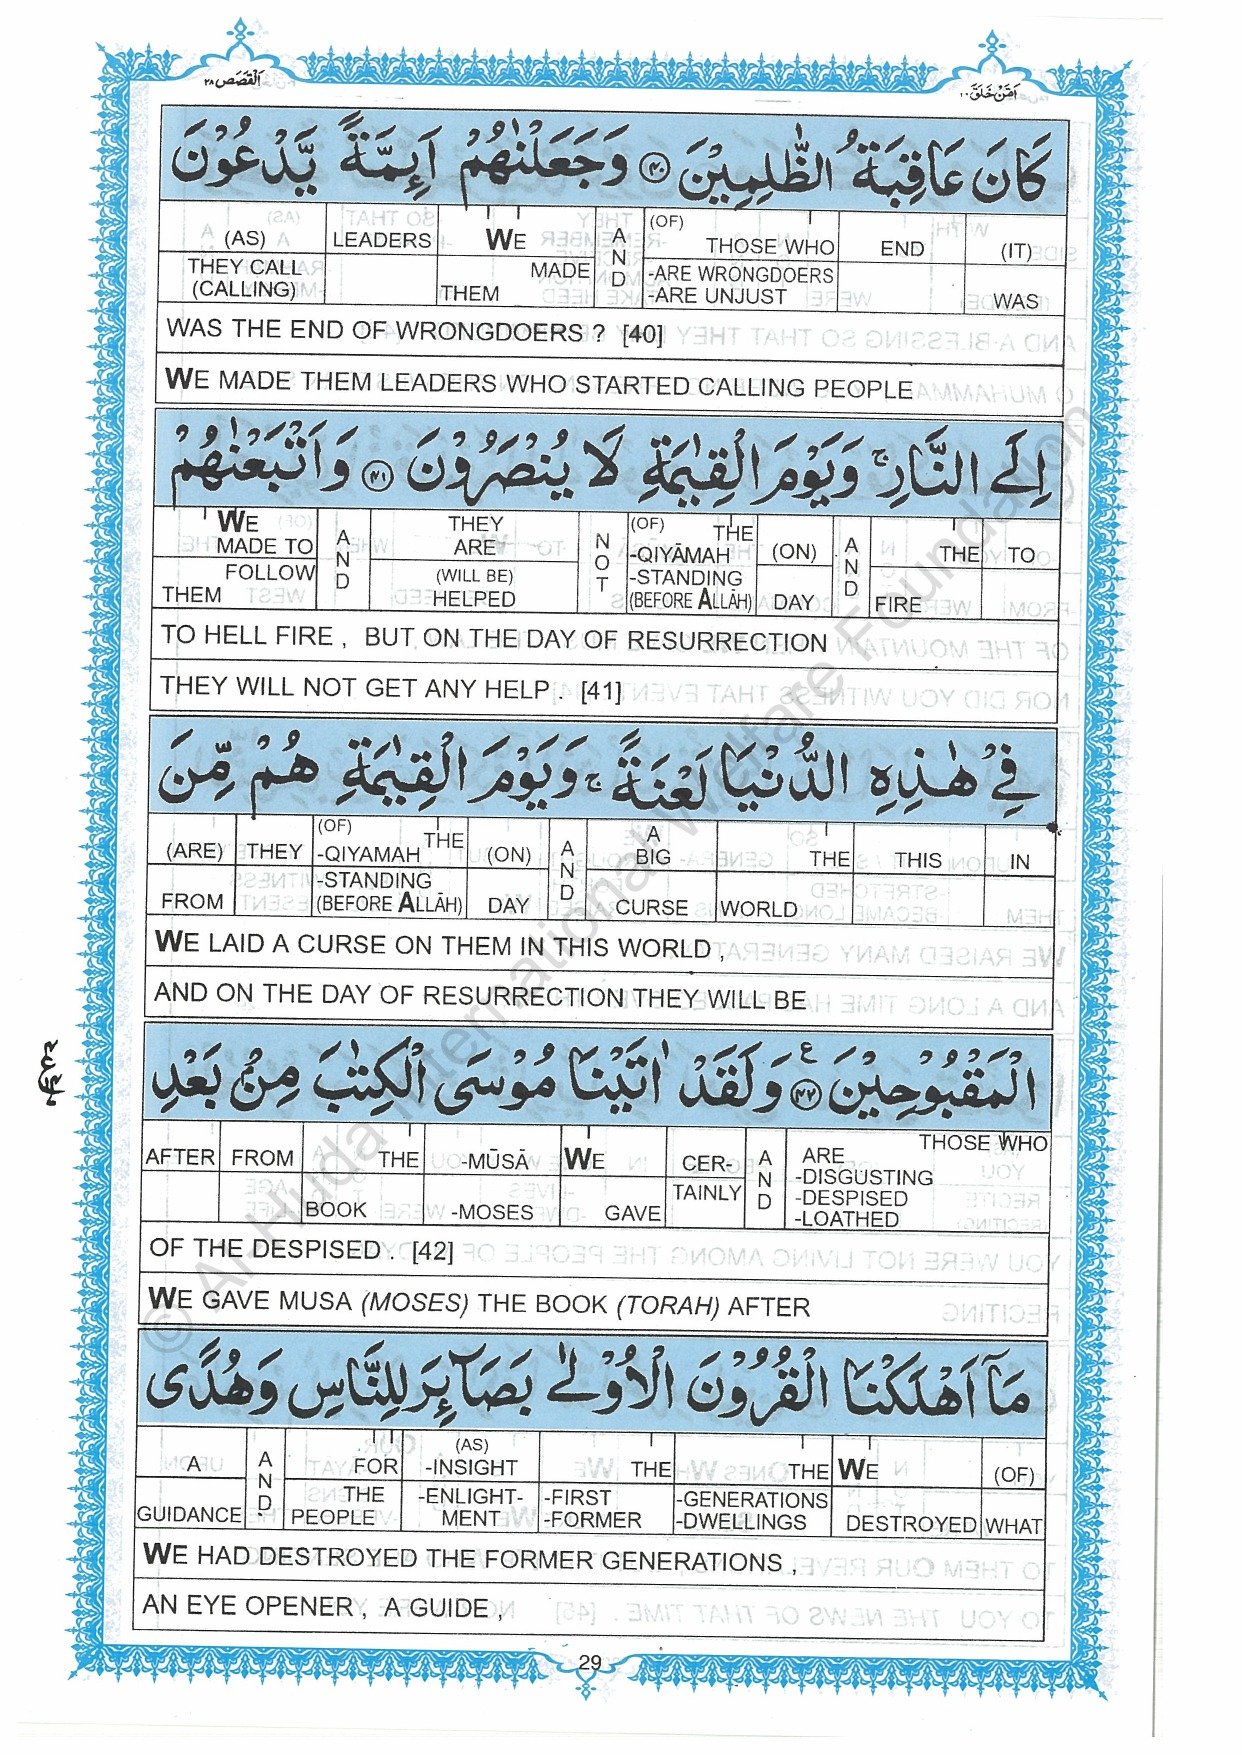 اَمَّنْ خَلَقَ ٢٠
اَلْقَصَص ٢٨
كَانَ عَاقِبَةُ الظّٰلِمِيْنَ ﴿٤٠﴾ وَجَعَلْنٰهُمْ اَئِمَّةً يَّدْعُوْنَ
(AS) LEADERS WE AND (OF) THOSE WHO END (IT)
THEY CALL (CALLING) THEM MADE -ARE WRONGDOERS -ARE UNJUST WAS
WAS THE END OF WRONGDOERS ? [40]
WE MADE THEM LEADERS WHO STARTED CALLING PEOPLE
اِلَى النَّارِ ۚ وَيَوْمَ الْقِيٰمَةِ لَا يُنْصَرُوْنَ ﴿٤١﴾ وَاَتْبَعْنٰهُمْ
WE MADE TO AND THEY ARE NOT (OF) THE -QIYĀMAH (ON) AND THE TO
FOLLOW THEM (WILL BE) HELPED -STANDING (BEFORE ALLĀH) DAY FIRE
TO HELL FIRE , BUT ON THE DAY OF RESURRECTION
THEY WILL NOT GET ANY HELP . [41]
فِيْ هٰذِهِ الدُّنْيَا لَعْنَةً ۚ وَيَوْمَ الْقِيٰمَةِ هُمْ مِّنَ
(ARE) THEY (OF) THE -QIYAMAH (ON) AND A BIG THE THIS IN
FROM -STANDING (BEFORE ALLĀH) DAY CURSE WORLD
WE LAID A CURSE ON THEM IN THIS WORLD ,
AND ON THE DAY OF RESURRECTION THEY WILL BE
الْمَقْبُوْحِيْنَ ﴿٤٢﴾ ع وَلَقَدْ اٰتَيْنَا مُوْسَى الْكِتٰبَ مِنْۢ بَعْدِ
AFTER FROM THE -MŪSĀ WE CER- AND THOSE WHO ARE -DISGUSTING
BOOK -MOSES GAVE TAINLY -DESPISED -LOATHED
OF THE DESPISED . [42]
WE GAVE MUSA (MOSES) THE BOOK (TORAH) AFTER
مَآ اَهْلَكْنَا الْقُرُوْنَ الْاُوْلٰى بَصَآئِرَ لِلنَّاسِ وَهُدًى
A AND FOR (AS) -INSIGHT THE THE WE (OF)
GUIDANCE THE PEOPLE -ENLIGHT- MENT -FIRST -FORMER -GENERATIONS -DWELLINGS DESTROYED WHAT
WE HAD DESTROYED THE FORMER GENERATIONS ,
AN EYE OPENER , A GUIDE ,
29
© Al Huda International Welfare Foundation